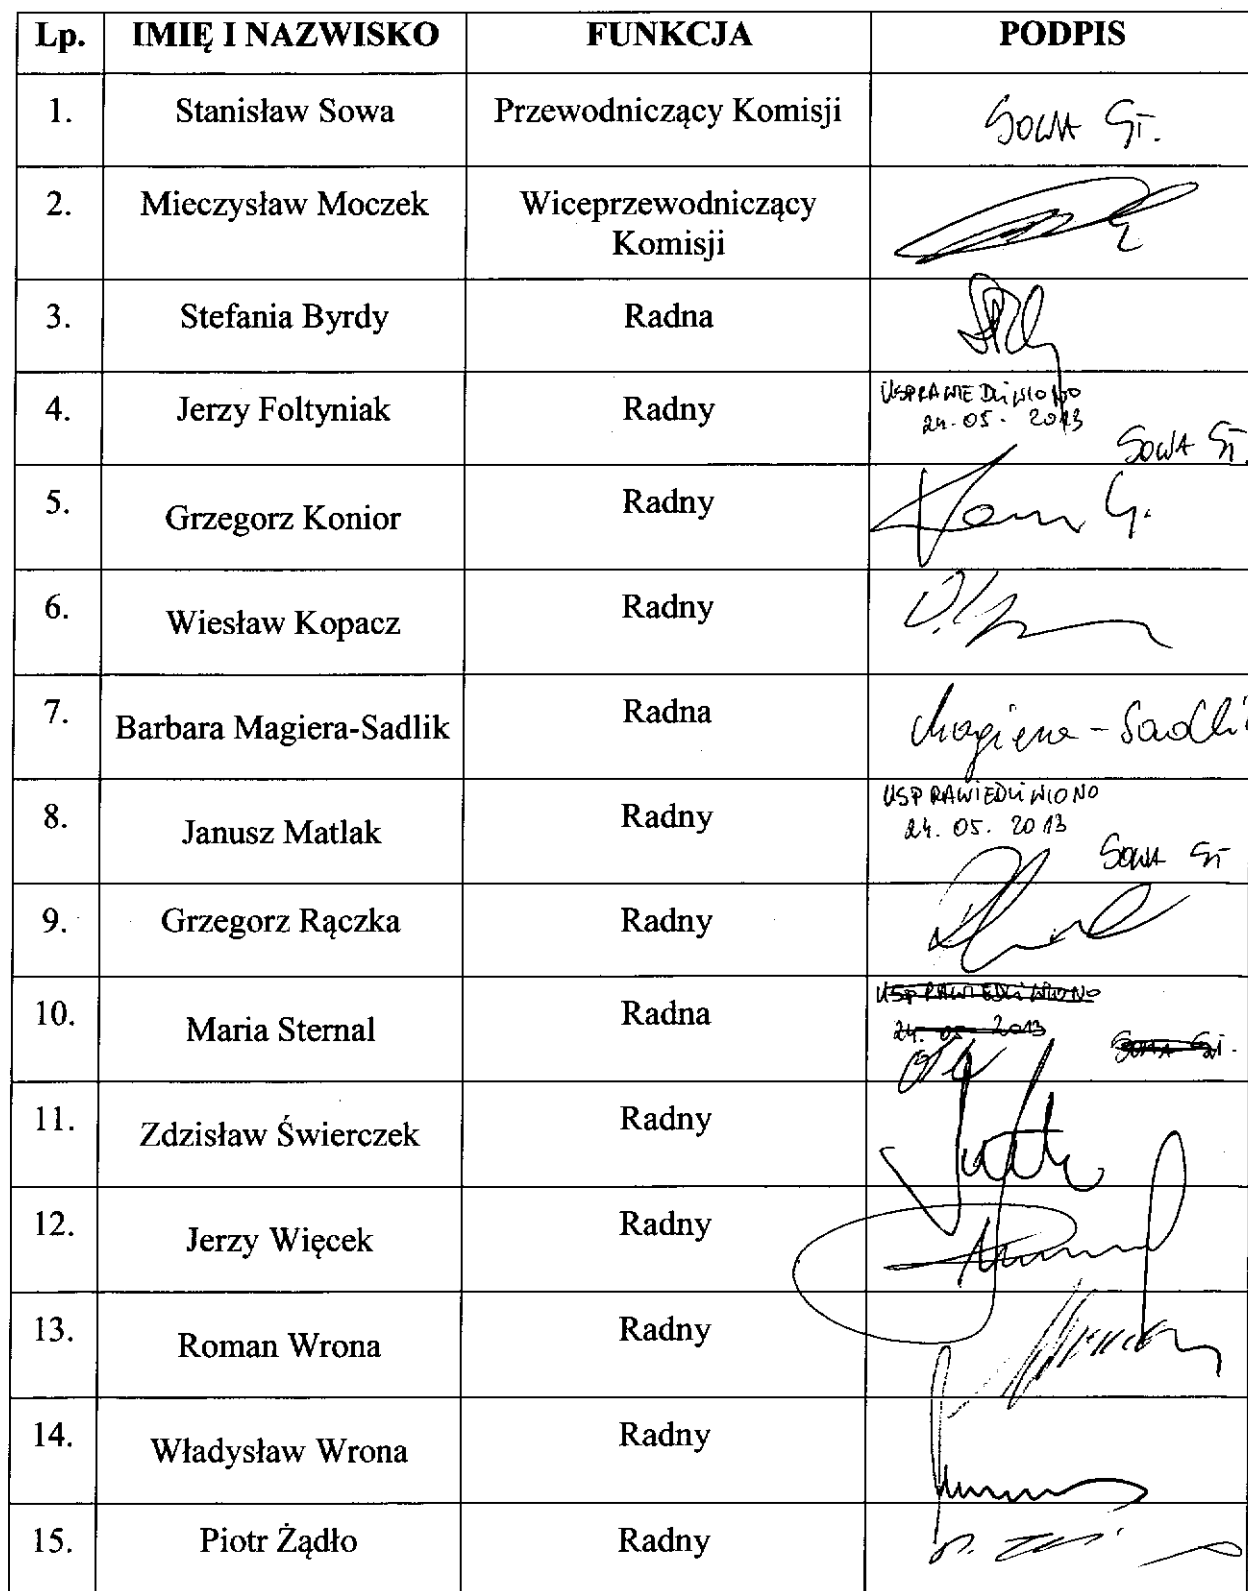 Lp. IMIĘ I NAZWISKO FUNKCJA PODPIS
1. Stanisław Sowa Przewodniczący Komisji SOWA ST.
2. Mieczysław Moczek Wiceprzewodniczący
Komisji
3. Stefania Byrdy Radna
4. Jerzy Foltyniak Radny USPRAWIEDLIWIONO
24.05.2013
SOWA ST.
5. Grzegorz Konior Radny
6. Wiesław Kopacz Radny
7. Barbara Magiera-Sadlik Radna Magiera-Sadli
8. Janusz Matlak Radny USPRAWIEDLIWIONO
24.05.2013
SOWA ST
9. Grzegorz Rączka Radny
10. Maria Sternal Radna USPRAWIEDLIWIONO
24.05.2013
SOWA ST.
11. Zdzisław Świerczek Radny
12. Jerzy Więcek Radny
13. Roman Wrona Radny
14. Władysław Wrona Radny
15. Piotr Żądło Radny